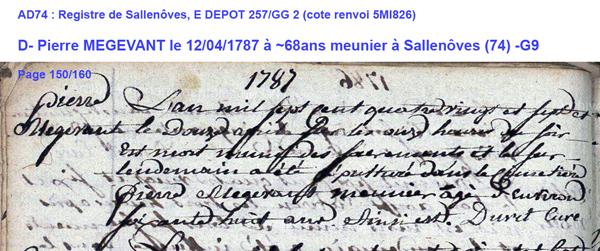 AD74 : Registre de Sallenôves, E DEPOT 257/GG 2 (cote renvoi 5MI826)
D- Pierre MEGEVANT le 12/04/1787 à ~68ans meunier à Sallenôves (74) -G9
Page 150/160
1787
pierre L'an mil sept cent quatre vingt et sept et
Megevant le douze avril sur les onze heures du soir
est mort muni des sacrements et le sur
lendemain a été sepulturé dans le cimetiere
Pierre Megevant meunier âgé d'environ
soixante huit ans Ainsi est Duret Curé